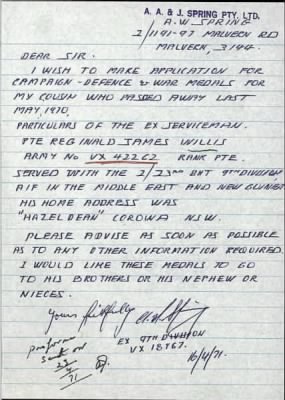 A. A. & J. SPRING PTY. LTD.
A.W. SPRING
2/1191-97 MALVERN RD
MALVERN, 3144.
DEAR SIR.
I WISH TO MAKE APPLICATION FOR
CAMPAIGN - DEFENCE & WAR MEDALS FOR
MY COUSIN WHO PASSED AWAY LAST
MAY, 1970.
PARTICULARS OF THE EX SERVICEMAN.
PTE REGINALD JAMES WILLIS
ARMY NO VX 42262 RANK PTE.
SERVED WITH THE 2/23RD BNT 9TH DIVISION
AIF IN THE MIDDLE EAST AND NEW GUINEA
HIS HOME ADDRESS WAS
"HAZELDEAN" COROWA N.S.W.
PLEASE ADVISE AS SOON AS POSSIBLE
AS TO ANY OTHER INFORMATION REQUIRED
I WOULD LIKE THESE MEDALS TO GO
TO HIS BROTHERS OR HIS NEPHEW OR
NIECES.
Yours faithfully
EX 9TH DIVISION
VX 18767.
16/4/71.
proforma
sent on
23/4/71